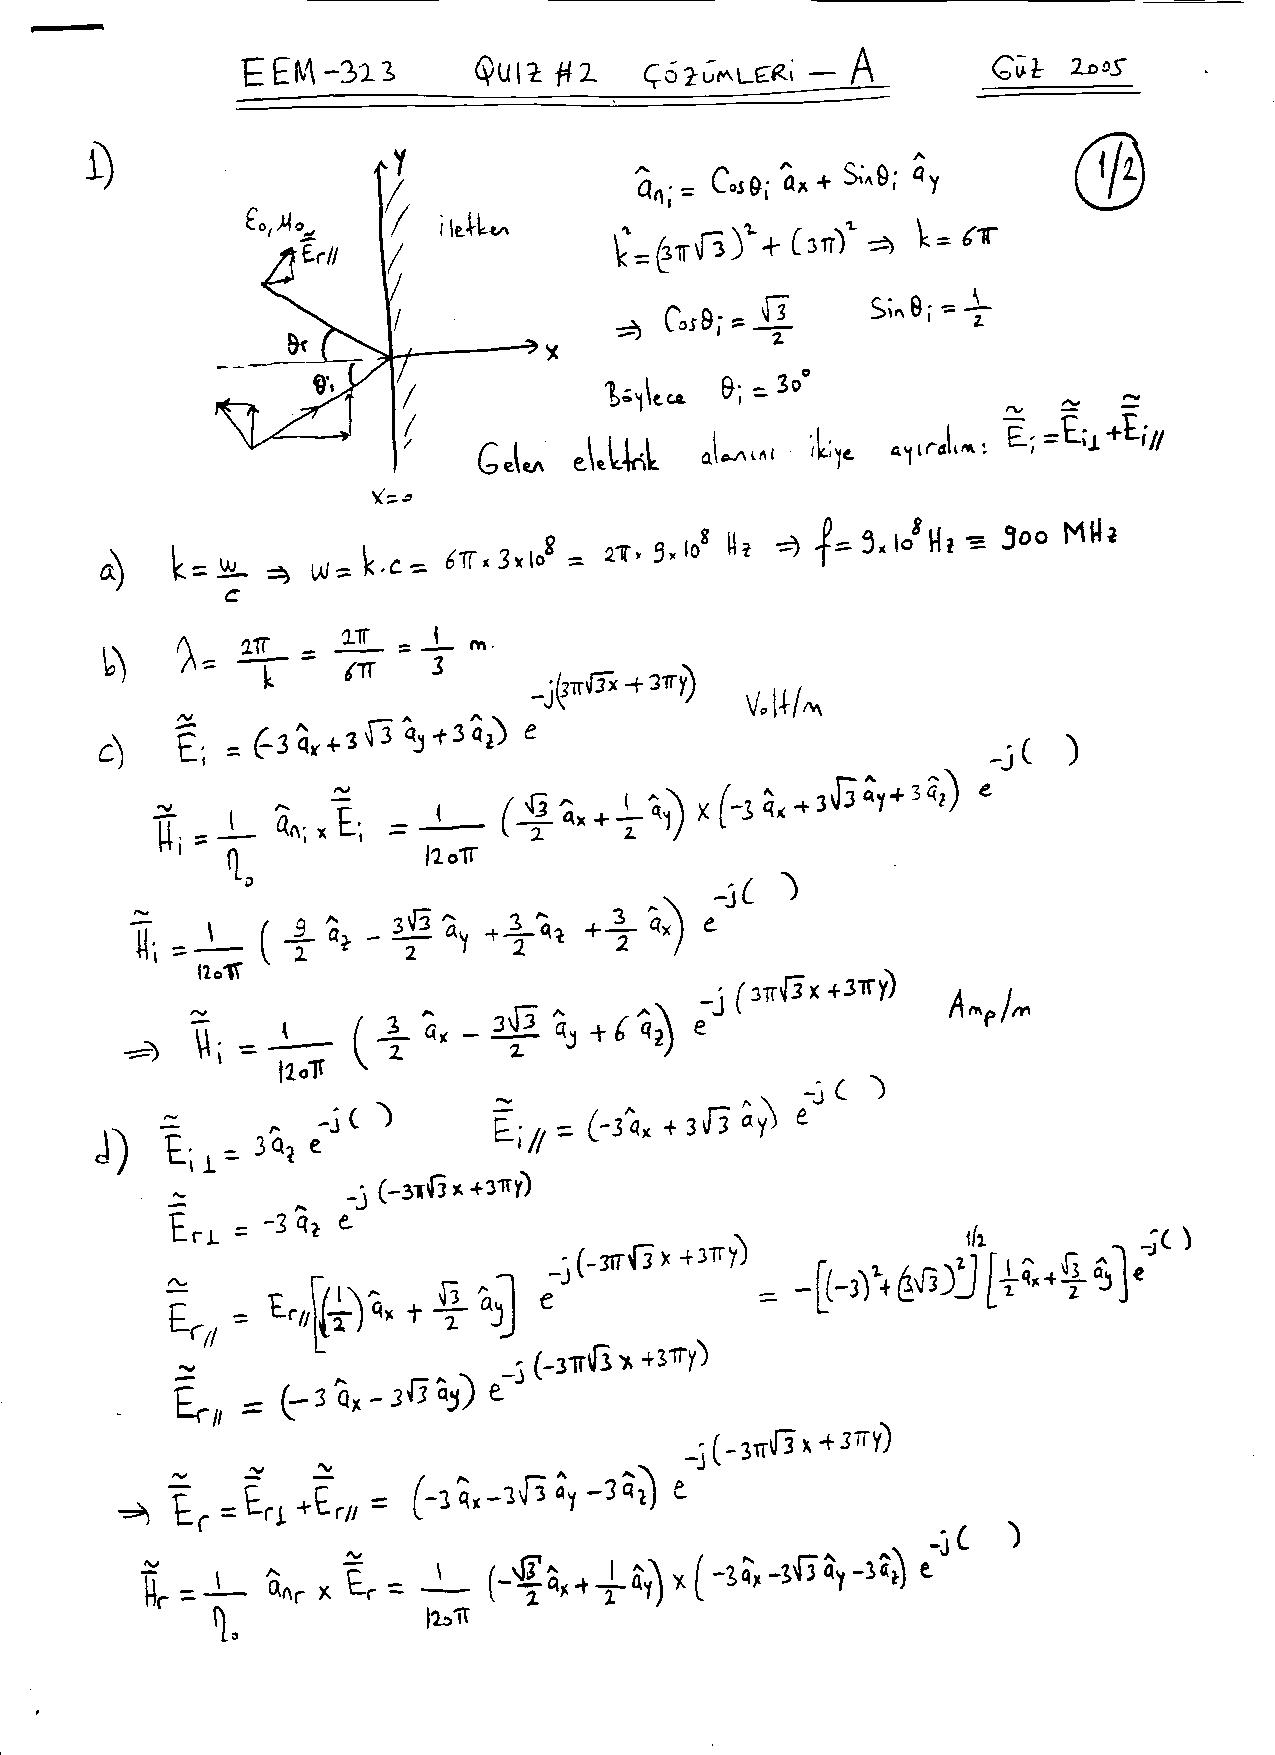 EEM-323 QUIZ #2 ÇÖZÜMLERİ - A GÜZ 2005
1/2
1)
Y
ε₀, μ₀
Ẽ̄r//
iletken
θr
x
θi
x=0
âni = Cosθi âx + Sinθi ây
k² = (3π√3)² + (3π)² ⇒ k = 6π
⇒ Cosθi = √3/2 Sinθi = 1/2
Böylece θi = 30°
Gelen elektrik alanını ikiye ayıralım: Ẽ̄i = Ẽ̄i⊥ + Ẽ̄i//
a) k = w/c ⇒ w = k.c = 6π × 3×10⁸ = 2π × 9×10⁸ Hz ⇒ f = 9×10⁸ Hz ≡ 900 MHz
b) λ = 2π/k = 2π/6π = 1/3 m.
c) Ẽ̄i = (-3 âx + 3√3 ây + 3 âz) e^-j(3π√3x + 3πy) Volt/m
H̃̄i = 1/η₀ âni × Ẽ̄i = 1/120π (√3/2 âx + 1/2 ây) × (-3 âx + 3√3 ây + 3 âz) e^-j( )
H̃̄i = 1/120π (9/2 âz - 3√3/2 ây + 3/2 âz + 3/2 âx) e^-j( )
⇒ H̃̄i = 1/120π (3/2 âx - 3√3/2 ây + 6 âz) e^-j(3π√3x + 3πy) Amp/m
d) Ẽ̄i⊥ = 3 âz e^-j( ) Ẽ̄i// = (-3âx + 3√3 ây) e^-j( )
Ẽ̄r⊥ = -3 âz e^-j(-3π√3x + 3πy)
Ẽ̄r// = Er//[(1/2) âx + √3/2 ây] e^-j(-3π√3x + 3πy) = -[(-3)² + (3√3)²]^1/2 [1/2 âx + √3/2 ây] e^-j( )
Ẽ̄r// = (-3 âx - 3√3 ây) e^-j(-3π√3x + 3πy)
⇒ Ẽ̄r = Ẽ̄r⊥ + Ẽ̄r// = (-3 âx - 3√3 ây - 3 âz) e^-j(-3π√3x + 3πy)
H̃̄r = 1/η₀ ânr × Ẽ̄r = 1/120π (-√3/2 âx + 1/2 ây) × (-3 âx - 3√3 ây - 3 âz) e^-j( )